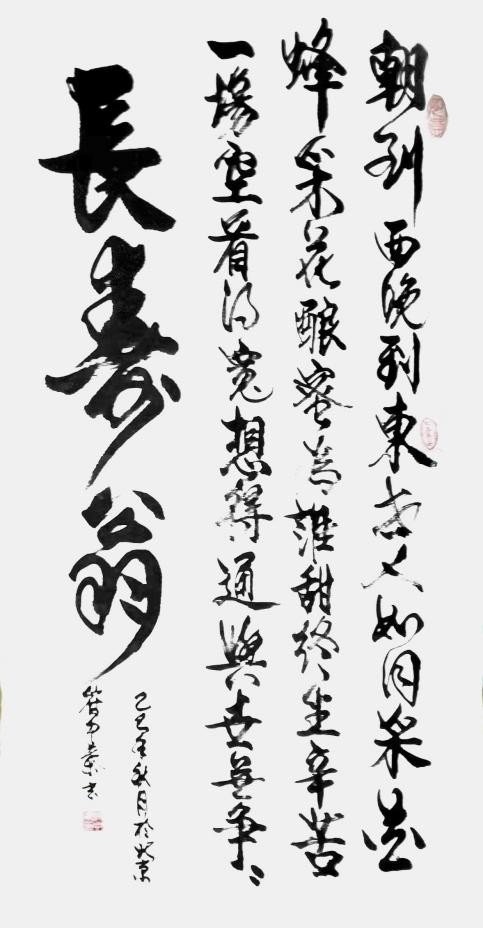 朝到西晚到東人如同采花
蜂采花釀蜜為誰甜終生辛苦
一場空看得寬想得通與世無爭
長壽翁
乙巳年秋月於北京